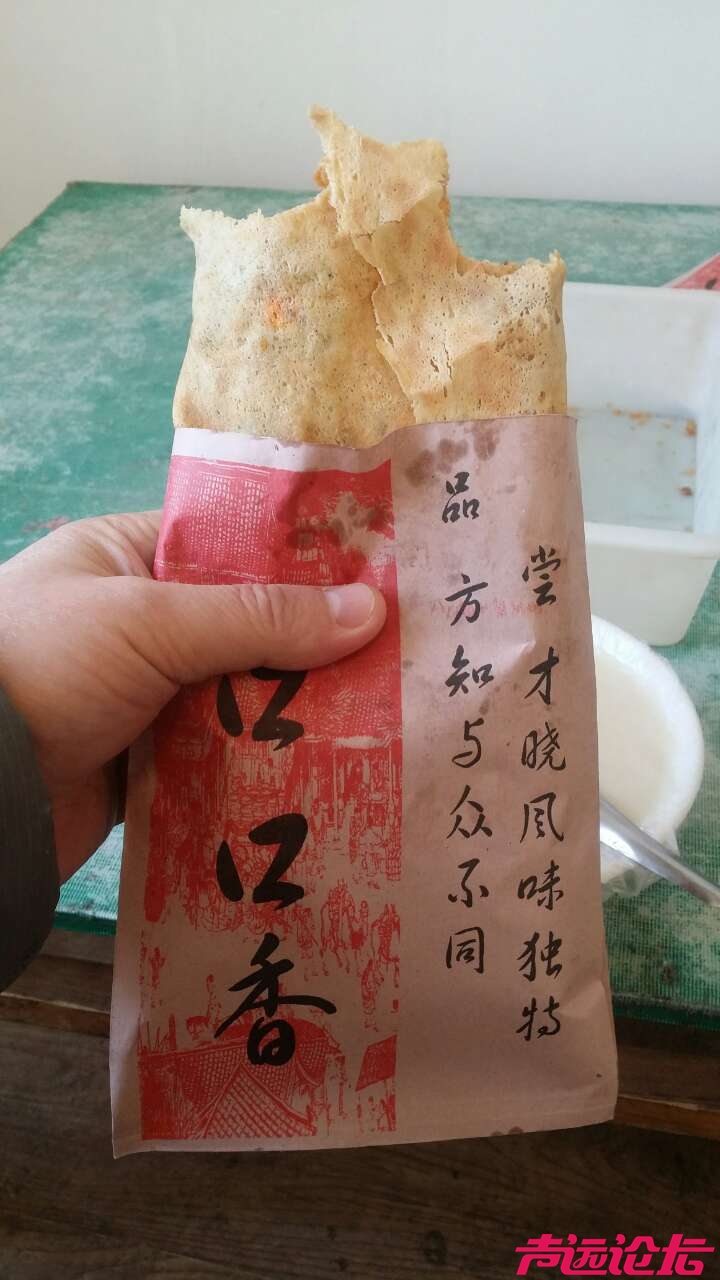 尝才晓风味独特
品方知与众不同
口口香
声远论坛